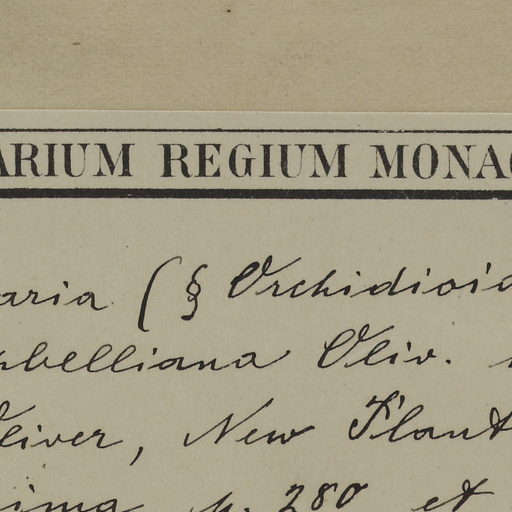 ARIUM REGIUM MONAC
aria (§ Orchidioid
pbelliana Oliv.
Oliver, New Plant
ima p. 280 et